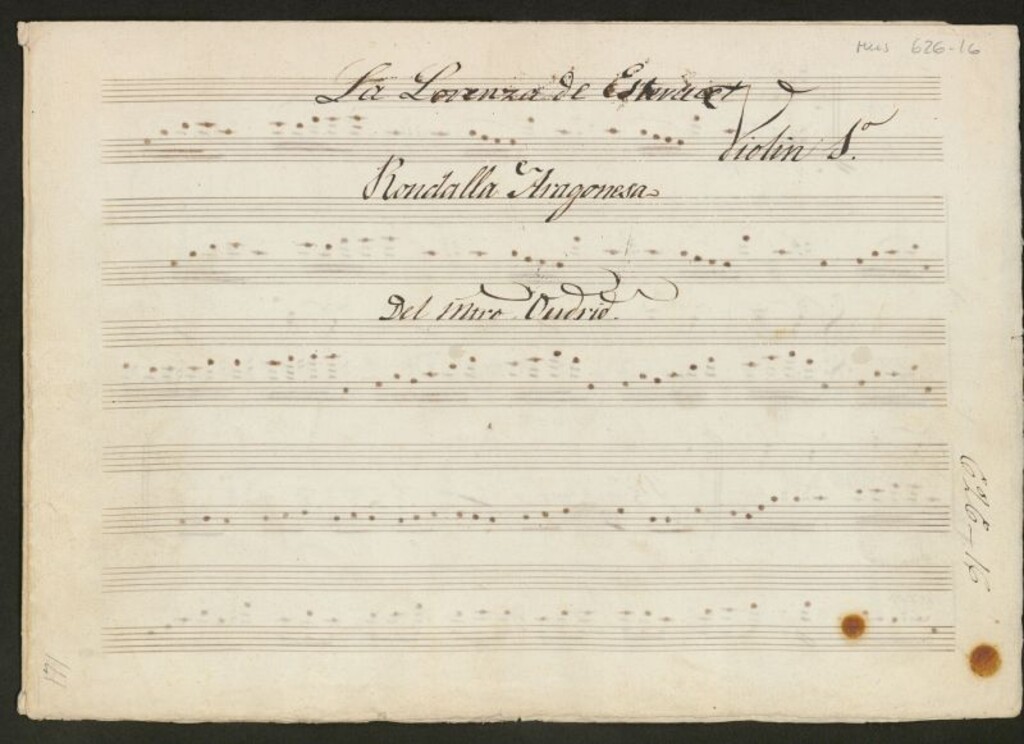 Mus 626-16
La Lorenza de
Violin 1.º
Rondalla Aragonesa
Del Mtro. Oudrid.
626-16